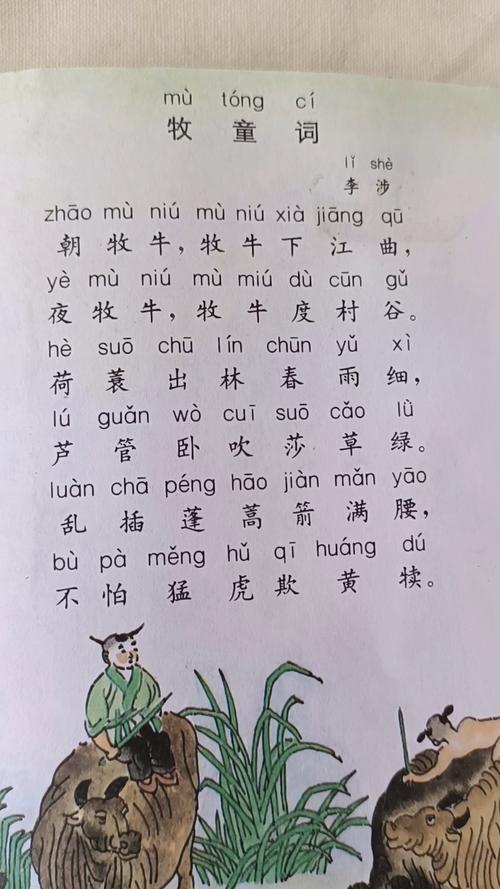 mù tóng cí
牧童词
lǐ shè
李涉
zhāo mù niú mù niú xià jiāng qū
朝牧牛，牧牛下江曲，
yè mù niú mù miú dù cūn gǔ
夜牧牛，牧牛度村谷。
hè suō chū lín chūn yǔ xì
荷蓑出林春雨细，
lú guǎn wò cuī suō cǎo lǜ
芦管卧吹莎草绿。
luàn chā péng hāo jiàn mǎn yāo
乱插蓬蒿箭满腰，
bù pà měng hǔ qī huáng dú
不怕猛虎欺黄犊。